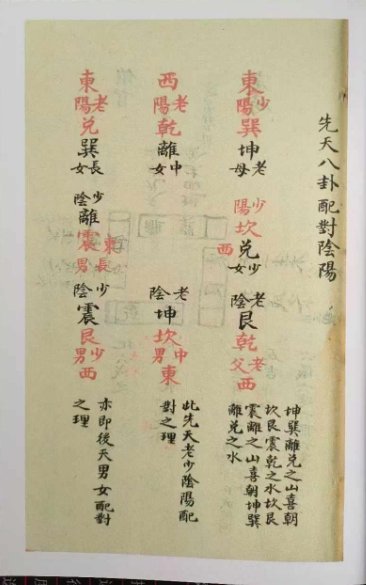 先天八卦配對陰陽
東少陽巽坤老母 少陽坎西兌少女 老陰艮乾老父西
坤巽離兌之山喜朝
坎艮震乾之水坎艮
震離之山喜朝坤巽
離兌之水
西老陽乾離中女 老陰坤坎中男東
此先天老少陰陽配
對之理
東老陽兌巽長女 少陰離震東長男 少陰震艮少男西
亦即後天男女配對
之理